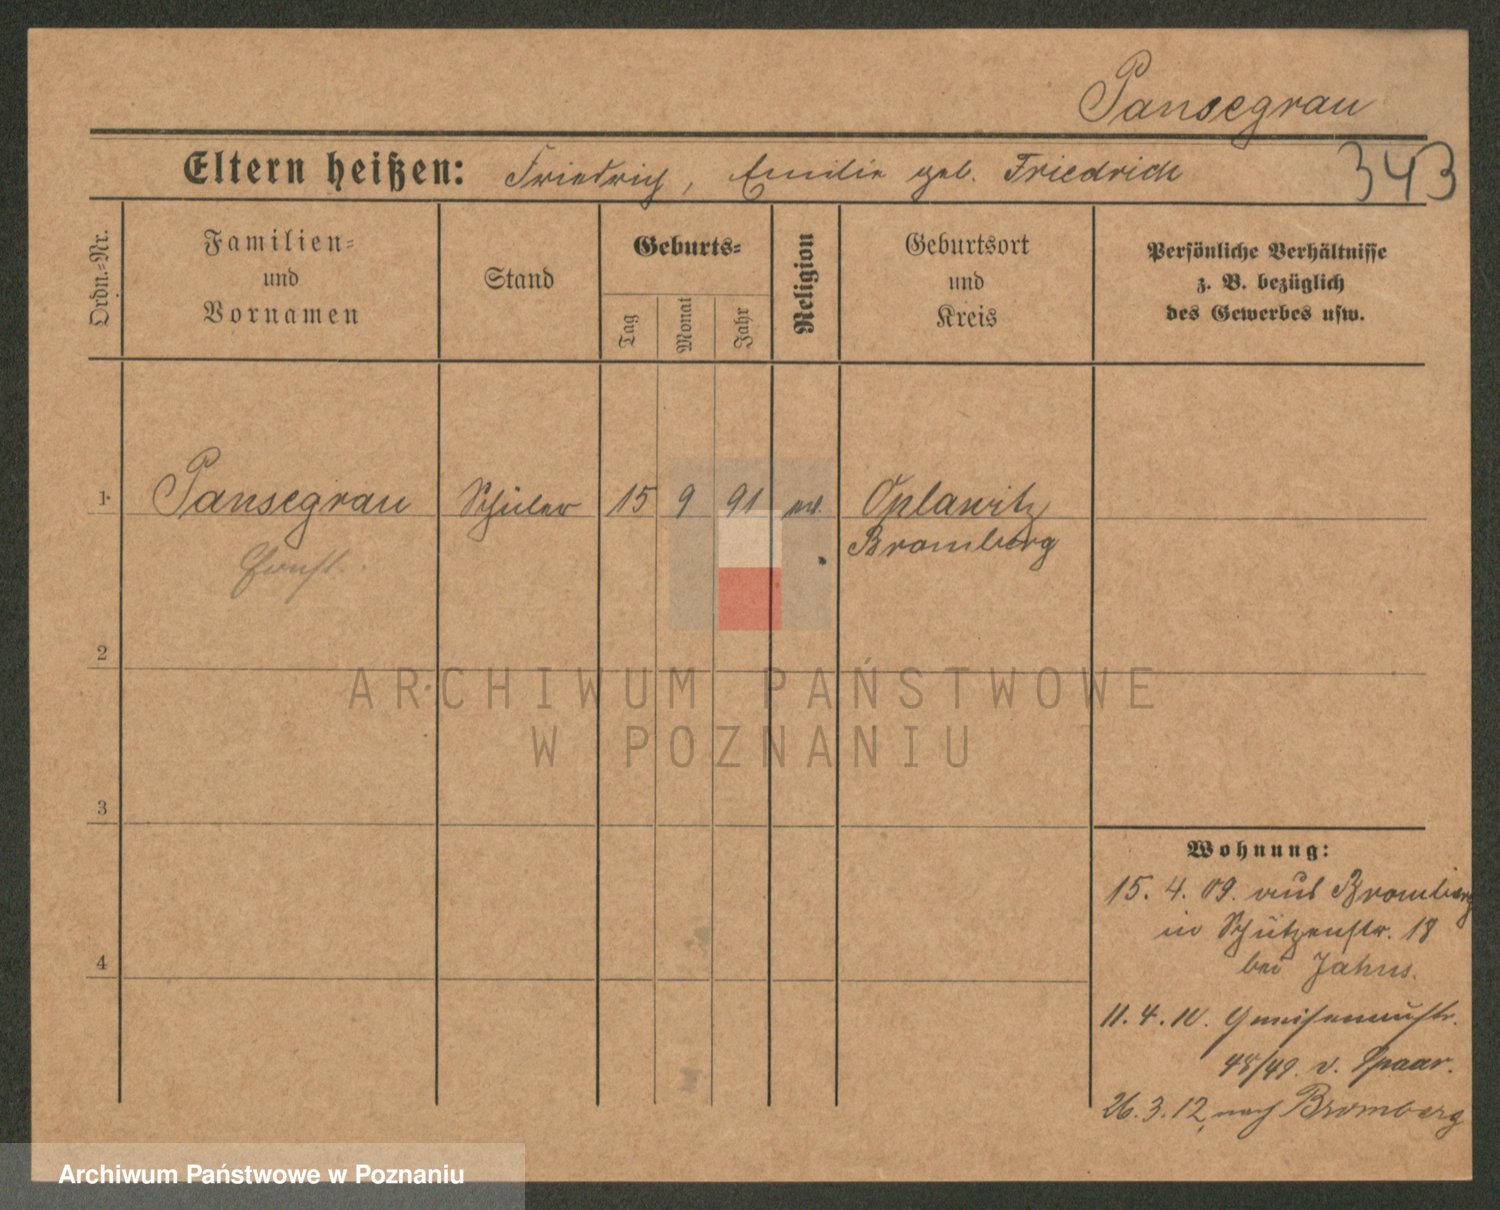 Pansegrau
343
Eltern heißen: Friedrich, Emilie geb. Friedrich
Ordn.-Nr.
Familien-
und
Vornamen
Stand
Geburts-
Tag
Monat
Jahr
Religion
Geburtsort
und
Kreis
Persönliche Verhältnisse
z. B. bezüglich
des Gewerbes usw.
1 Pansegrau Schüler 15 9 91 ev. Oplawitz
Bromberg
Ernst
2
3
4
Wohnung:
15. 4. 09. aus Bromberg
in Schützenstr. 18
bei Jahns.
11. 4. 10. Gneisenaustr.
48/49. v. Spaar.
26. 3. 12, nach Bromberg
ARCHIWUM PAŃSTWOWE
W POZNANIU
Archiwum Państwowe w Poznaniu